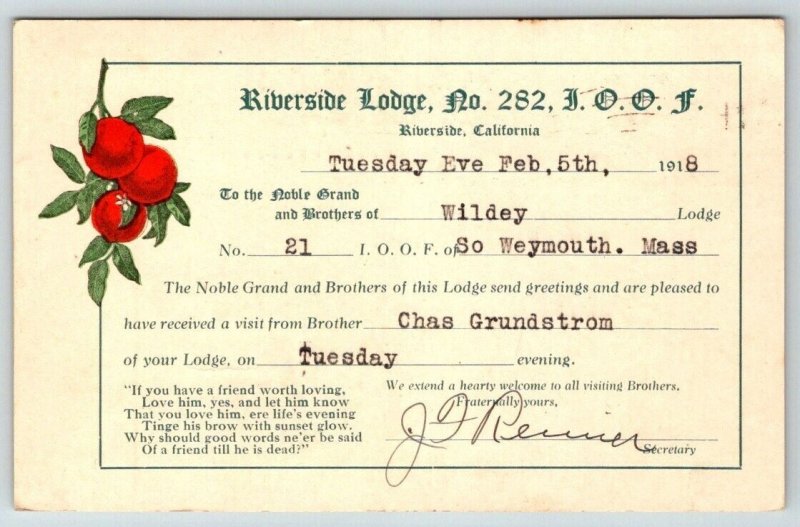 Riverside Lodge, No. 282, I. O. O. F.
Riverside, California
Tuesday Eve Feb, 5th, 1918
To the Noble Grand
and Brothers of Wildey Lodge
No. 21 I. O. O. F. of So Weymouth. Mass
The Noble Grand and Brothers of this Lodge send greetings and are pleased to
have received a visit from Brother Chas Grundstrom
of your Lodge, on Tuesday evening.
"If you have a friend worth loving,
Love him, yes, and let him know
That you love him, ere life's evening
Tinge his brow with sunset glow.
Why should good words ne'er be said
Of a friend till he is dead?"
We extend a hearty welcome to all visiting Brothers.
Fraternally yours,
Secretary